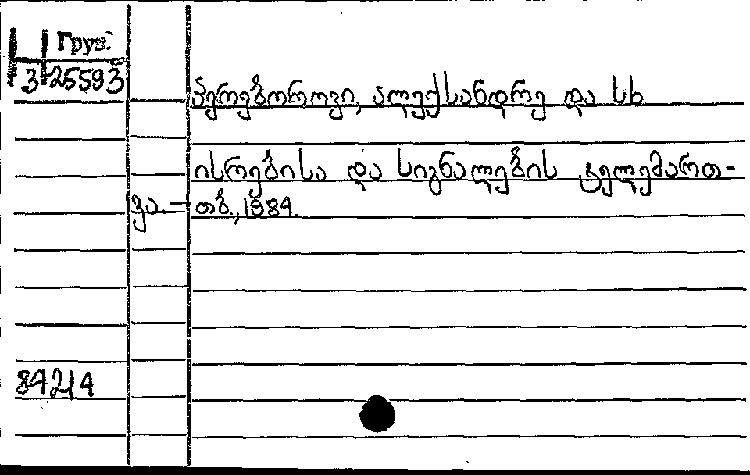 Груз.
3 25593
პერებოროვი, ალექსანდრე და სხ
ისრებისა და სიგნალების ტელემართ-
ვა. – თბ., 1984.
84214